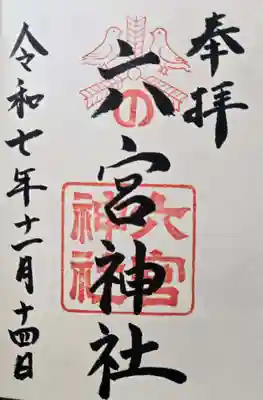 奉拝
六宮神社
の
六宮
神社
令和七年十一月十四日